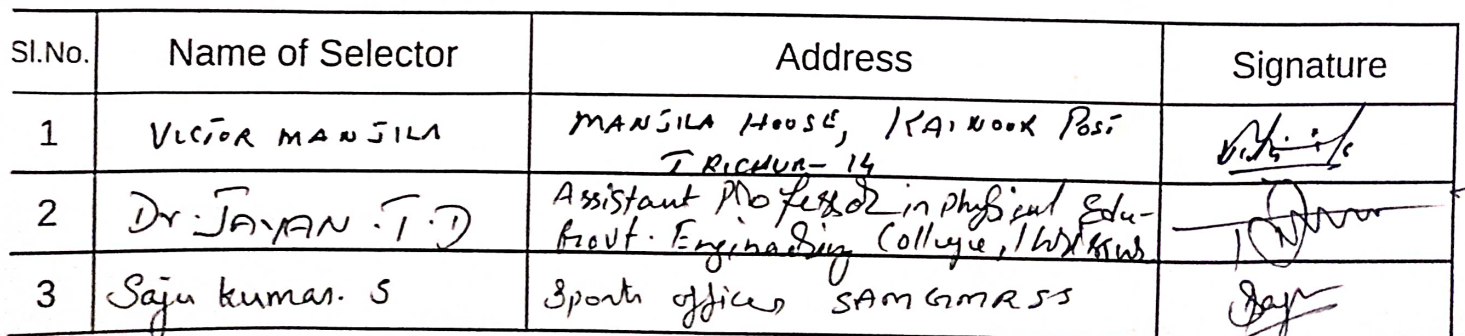 Sl.No. Name of Selector Address Signature
1 VICTOR MANJILA MANJILA HOUSE, KAINOOR POST
TRICHUR-14
2 Dr. JAYAN .T.D Assistant Professor in physical Edu-
Govt. Engineering College,
3 Saju kumar. S Sports officer, SAMGMRSS